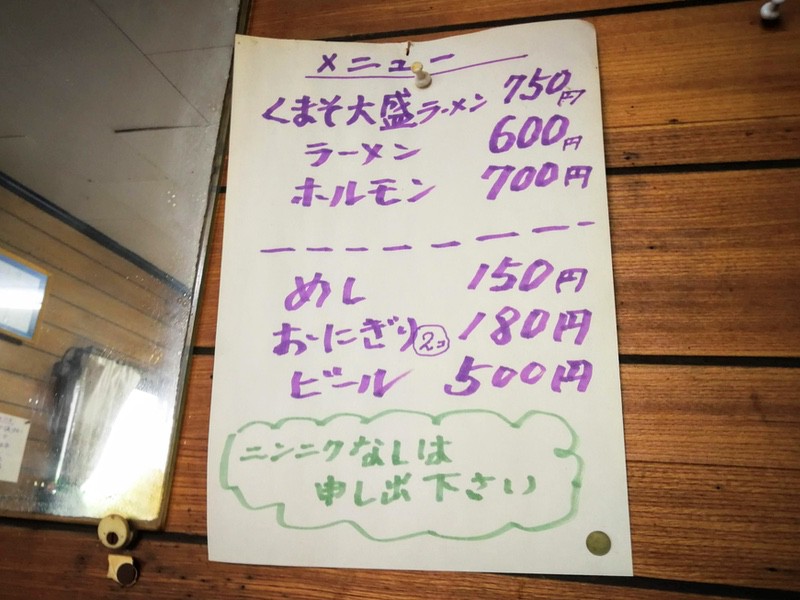 メニュー
くまそ大盛ラーメン 750円
ラーメン 600円
ホルモン 700円
めし 150円
おにぎり2コ 180円
ビール 500円
ニンニクなしは
申し出下さい